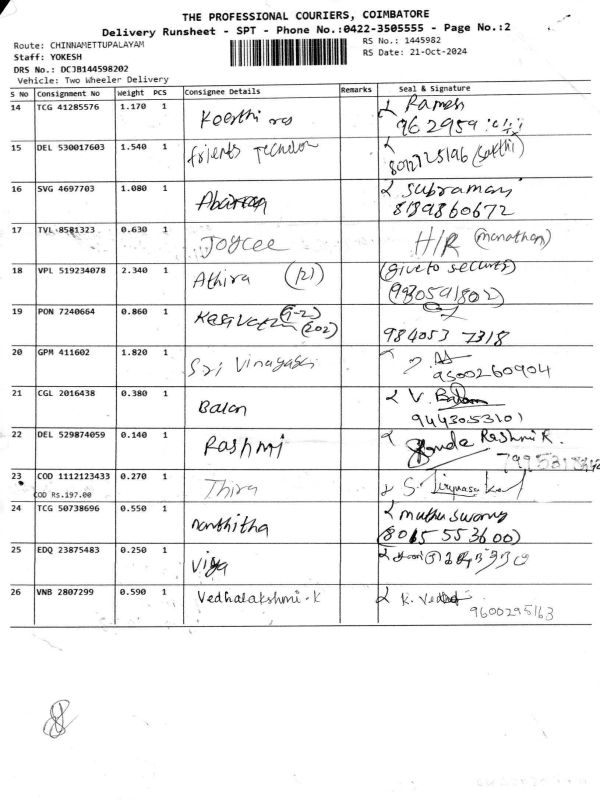 THE PROFESSIONAL COURIERS, COIMBATORE
Delivery Runsheet - SPT - Phone No.:0422-3505555 - Page No.:2
Route: CHINNAMETTUPALAYAM
RS No.: 1445982
Staff: YOKESH
RS Date: 21-Oct-2024
DRS No.: DCJB144598202
Vehicle: Two Wheeler Delivery
S No Consignment No Weight PCS Consignee Details Remarks Seal & Signature
14 TCG 41285576 1.170 1 Ramesh
962959
15 DEL 530017603 1.540 1 frients
8012725196 (Sakthi)
16 SVG 4697703 1.080 1 Subramani
8189860672
17 TVL 8581323 0.630 1 Joycee H/R (manathan)
18 VPL 519234078 2.340 1 Athira (121) (give to security)
(980591802)
19 PON 7240664 0.860 1 (202)
984053 7318
20 GPM 411602 1.820 1 Sri Vinayaga
9500260904
21 CGL 2016438 0.380 1 Balan V. Balan
9443053101
22 DEL 529874059 0.140 1 Rashmi Reshmi R.
23 COD 1112123433 0.270 1 Thira S.
COD Rs.197.00
24 TCG 50738696 0.550 1 nanthitha muthuswamy
(8015553600)
25 EDQ 23875483 0.250 1 Vijya
26 VNB 2807299 0.590 1 Vedhalakshmi-K K.
9600295163